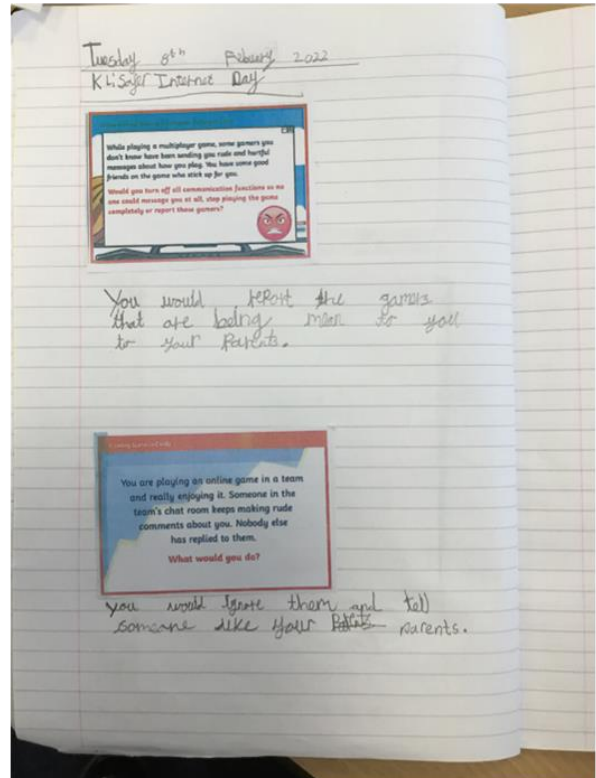 Tuesday 8th Febuary 2022
KLi Safer Internet Day
While playing a multiplayer game, some gamers you
don't know have been sending you rude and hurtful
messages about how you play. You have some good
friends on the game who stick up for you.
Would you turn off all communication functions so no
one could message you at all, stop playing the game
completely or report these gamers?
You would report the gamers
that are being mean to you
to your Parents.
You are playing an online game in a team
and really enjoying it. Someone in the
team's chat room keeps making rude
comments about you. Nobody else
has replied to them.
What would you do?
You would Ignore them and tell
someone like your parents.